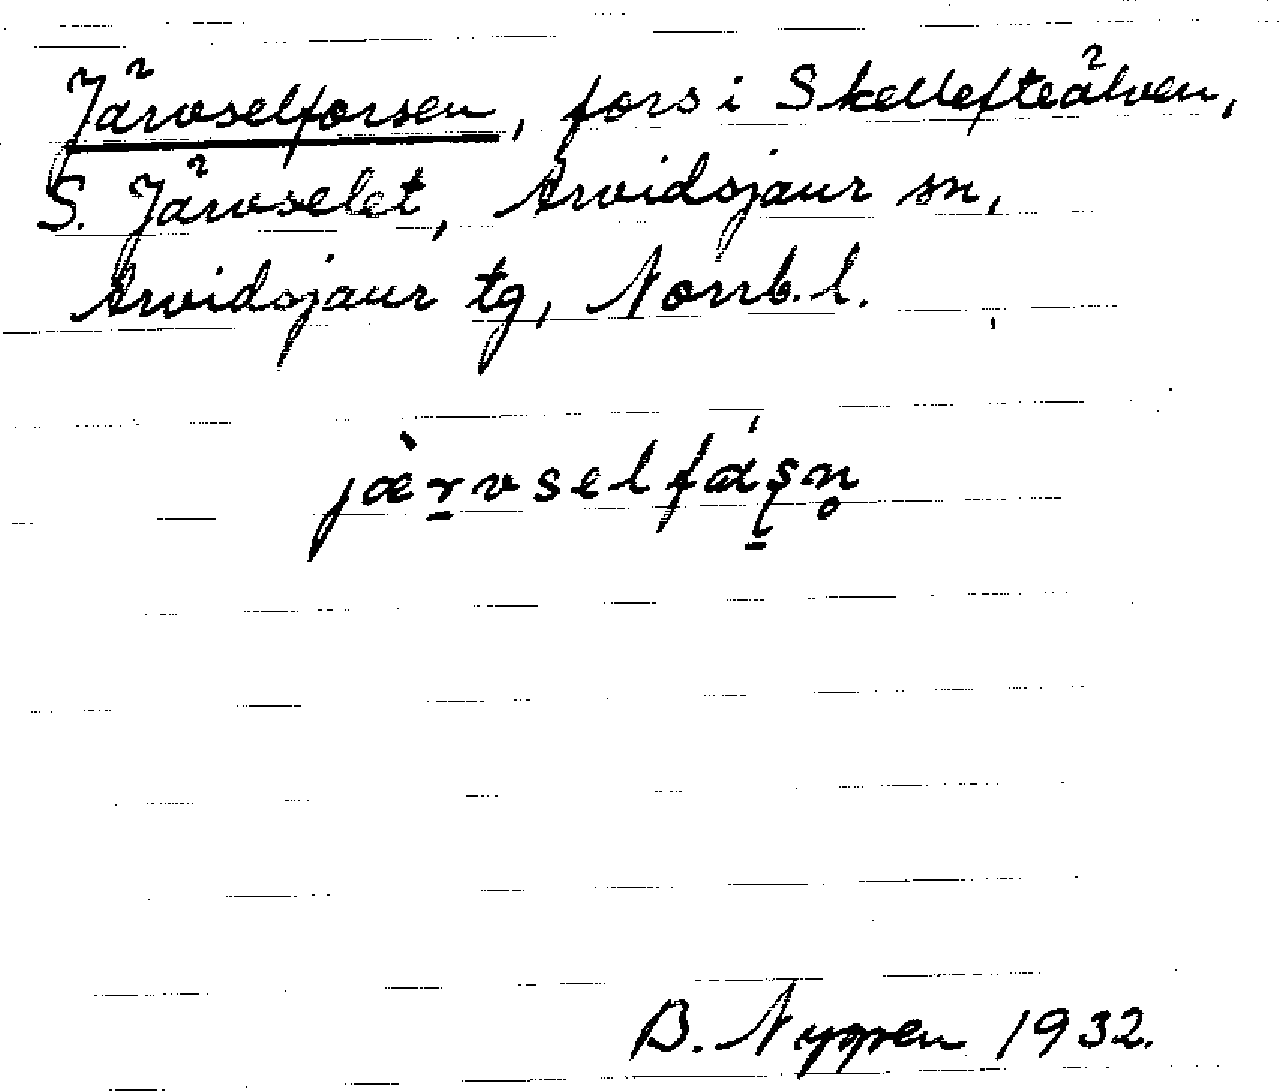 Järvselforsen, fors i Skellefteälven,
S. Järvselet, Arvidsjaur sn,
Arvidsjaur tg, Norrb. l.
jæ̀r̠vselfáʂ̠n̥
B. Nyggren 1932.